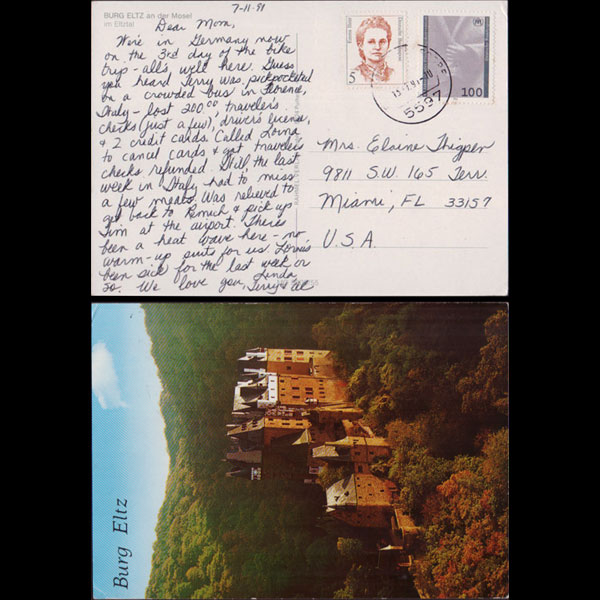 BURG ELTZ an der Mosel
im Eltztal
7-11-91
Dear Mom,
We're in Germany now
on the 3rd day of the bike
trip - all's well here. Guess
you heard Terry was pickpocketed
on a crowded bus in Florence,
Italy - lost 200.00 traveler's
checks (just a few), driver's license,
& 2 credit cards. Called Lorna
to cancel cards & got travelers
checks refunded. Still, the last
week in Italy had to miss
a few meals. Was relieved to
get back to & pick up
Jim at the airport. There's
been a heat wave here - no
warm-up suits for us. Lorna's
been sick for the last week or
so. We love you, Linda,
Terry &
5
100
5597
Mrs. Elaine Thigpen
9811 S.W. 165 Terr.
Miami, FL 33157
U.S.A.
Burg Eltz